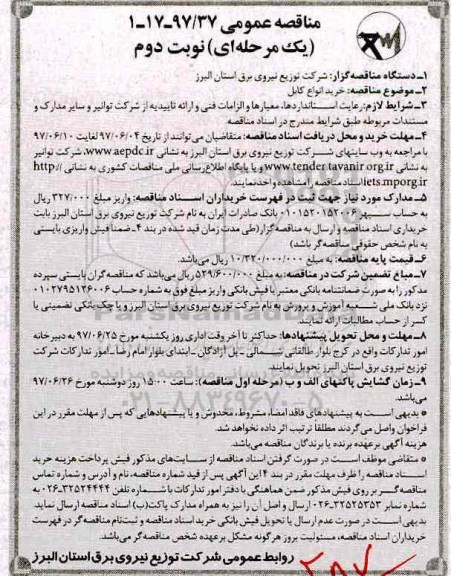 مناقصه عمومی ۹۷/۳۷-۱۷-۱
(یک مرحله‌ای) نوبت دوم
۱ـ دستگاه مناقصه‌گزار: شرکت توزیع نیروی برق استان البرز
۲ـ موضوع مناقصه: خرید انواع کابل
۳ـ شرایط لازم: رعایت استانداردها، معیارها و الزامات فنی و ارائه تاییدیه از شرکت توانیر و سایر مدارک و
مستندات مربوطه طبق شرایط مندرج در اسناد مناقصه
۴ـ مهلت خرید و محل دریافت اسناد مناقصه: متقاضیان می‌توانند از تاریخ ۹۷/۰۶/۰۴ لغایت ۹۷/۰۶/۱۰
با مراجعه به وب سایتهای شرکت توزیع نیروی برق استان البرز به نشانی www.aepdc.ir، شرکت توانیر
به نشانی www.tender.tavanir.org.ir و یا پایگاه اطلاع‌رسانی ملی مناقصات کشوری به نشانی http://
iets.mporg.ir اسناد مناقصه را مشاهده و اخذ نمایند.
۵ـ مدارک مورد نیاز جهت ثبت در فهرست خریداران اسناد مناقصه: واریز مبلغ ۳۲۷/۰۰۰ ریال
به حساب سپهر ۰۱۰۱۵۲۰۱۵۲۰۰۶ بانک صادرات ایران به نام شرکت توزیع نیروی برق استان البرز بابت
خریداری اسناد مناقصه و ارسال به مناقصه‌گزار (طی مدت زمان قید شده در بند ۴ـ ضمناً فیش واریزی بایستی
به نام شخص حقوقی مناقصه‌گر باشد)
۶ـ قیمت پایه مناقصه: به مبلغ ۱۰/۳۲۰/۰۰۰/۰۰۰ ریال می‌باشد.
۷ـ مبلغ تضمین شرکت در مناقصه: به مبلغ ۵۲۹/۶۰۰/۰۰۰ ریال می‌باشد که مناقصه‌گران بایستی سپرده
مذکور را به صورت ضمانتنامه بانکی معتبر یا فیش بانکی واریز مبلغ فوق به شماره حساب ۰۱۰۲۷۹۵۱۲۶۰۰۶
نزد بانک ملی شعبه آموزش و پرورش به نام شرکت توزیع نیروی برق استان البرز و یا چک بانکی تضمینی یا
کسر از حساب مطالبات ارائه نمایند.
۸ـ مهلت و محل تحویل پیشنهادها: حداکثر تا آخر وقت اداری روز یکشنبه مورخ ۹۷/۰۶/۲۵ به دبیرخانه
امور تدارکات واقع در کرج بلوار طالقانی شمالی ـ پل آزادگان ـ ابتدای بلوار امام رضا ـ امور تدارکات شرکت
توزیع نیروی برق استان البرز تحویل نمایند.
۹ـ زمان گشایش پاکتهای الف و ب (مرحله اول مناقصه): ساعت ۱۵:۰۰ روز دوشنبه مورخ ۹۷/۰۶/۲۶
می‌باشد.
* بدیهی است به پیشنهادهای فاقد امضاء، مشروط، مخدوش و یا پیشنهادهایی که پس از مهلت مقرر در این
فراخوان واصل می‌گردند مطلقاً ترتیب اثر داده نخواهد شد.
هزینه آگهی برعهده برنده یا برندگان مناقصه می‌باشد.
* متقاضی موظف است در صورت گرفتن اسناد مناقصه از سایت‌های مذکور فیش پرداخت هزینه خرید
اسناد مناقصه را ظرف مهلت مقرر در بند ۴ این آگهی پس از قید شماره مناقصه، نام و آدرس و شماره تماس
مناقصه‌گر بر روی فیش مذکور ضمن هماهنگی با دفتر امور تدارکات با شماره تلفن ۳۲۵۲۴۴۴۴-۰۲۶ به
شماره نمابر ۳۲۵۲۵۳۵۳-۰۲۶ ارسال و اصل آن را نیز به همراه مدارک پاکت (ب) اسناد مناقصه ارسال نماید.
بدیهی است در صورت عدم ارسال یا تحویل فیش بانکی خرید اسناد مناقصه و ثبت‌نام مناقصه‌گر در فهرست
خریداران اسناد مناقصه، مسئولیت بروز هرگونه مشکل برعهده شخص مناقصه‌گر می‌باشد.
روابط عمومی شرکت توزیع نیروی برق استان البرز
۰۲۱-۸۸۳۴۹۶۷۰-۵